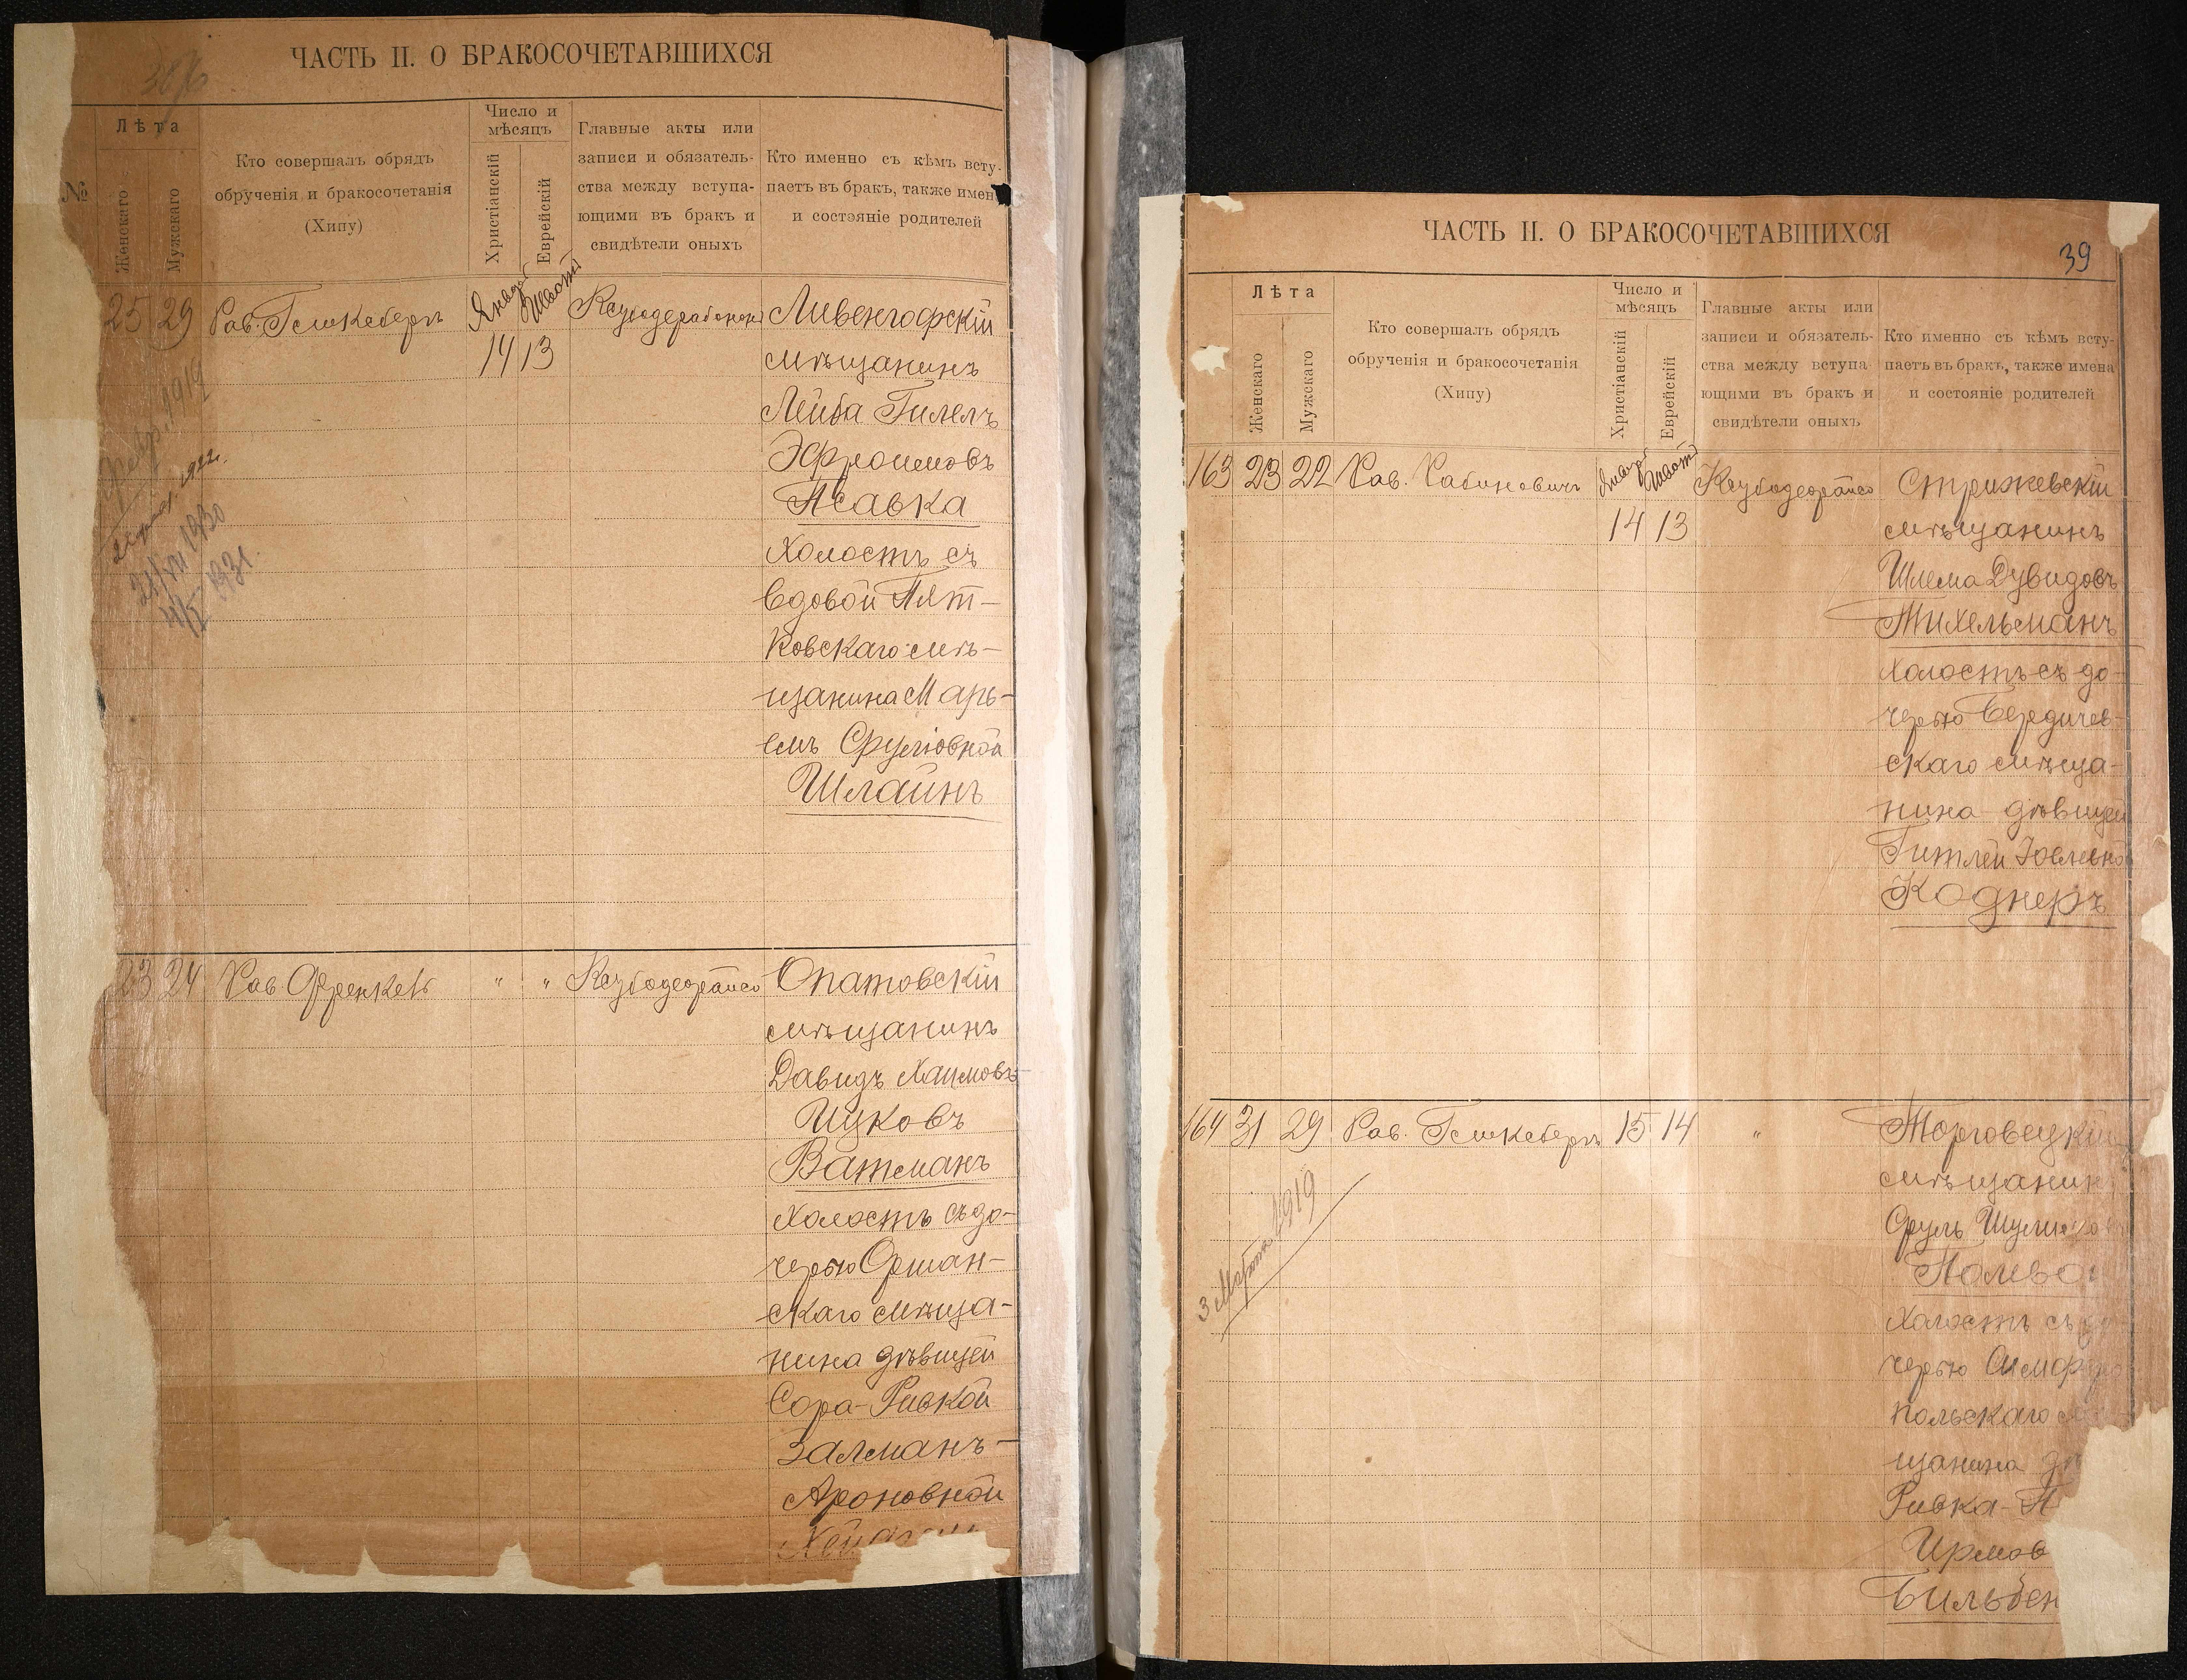 ЧАСТЬ II. О БРАКОСОЧЕТАВШИХСЯ
№
Лѣта
Женскаго
Мужскаго
Кто совершалъ обрядъ
обрученія и бракосочетанія
(Хипу)
Число и
мѣсяцъ
Христіанскій
Еврейскій
Главные акты или
записи и обязатель-
ства между вступа-
ющими въ бракъ и
свидѣтели оныхъ
Кто именно съ кѣмъ всту-
паетъ въ бракъ, также имена
и состэяніе родителей
25 29 Рав. 14 13
Ливенгофскій
мѣщанинъ
Лейба Гилелъ
Эфроимовъ
холостъ съ
вдовой Пят-
ковскаго мѣ-
щанина Марь-
емъ Сруліовной
Шлайнъ
1919
1922
1930
1931
23 24 Рав Френкель " "
Опатовскій
мѣщанинъ
Давидъ Хаимовъ
Ицковъ
Ватманъ
холостъ съ до-
черью Оршан-
скаго мѣща-
нина дѣвицей
Сора-Ривкой
Залманъ-
Ароновной
ЧАСТЬ II. О БРАКОСОЧЕТАВШИХСЯ
39
Лѣта
Женскаго
Мужскаго
Кто совершалъ обрядъ
обрученія и бракосочетанія
(Хипу)
Число и
мѣсяцъ
Христіанскій
Еврейскій
Главные акты или
записи и обязатель-
ства между вступа-
ющими въ бракъ и
свидѣтели оныхъ
Кто именно съ кѣмъ всту-
паетъ въ бракъ, также имена
и состояніе родителей
163 23 22 Рав. Рабиновичъ 14 13
Стрижевскій
мѣщанинъ
Шлема Дувидовъ
Тихельманъ
холостъ съ до-
черью Бердичев-
скаго мѣща-
нина дѣвицей
Гитлей Іоелевно
Коднеръ
164 31 29 Рав. 15 14 "
Торговецкій
мѣщанин
Сруль
холостъ съ
черью
польскаго
щанина
Ривка-П
Ирмов
Бильбен
3 Марта 1919